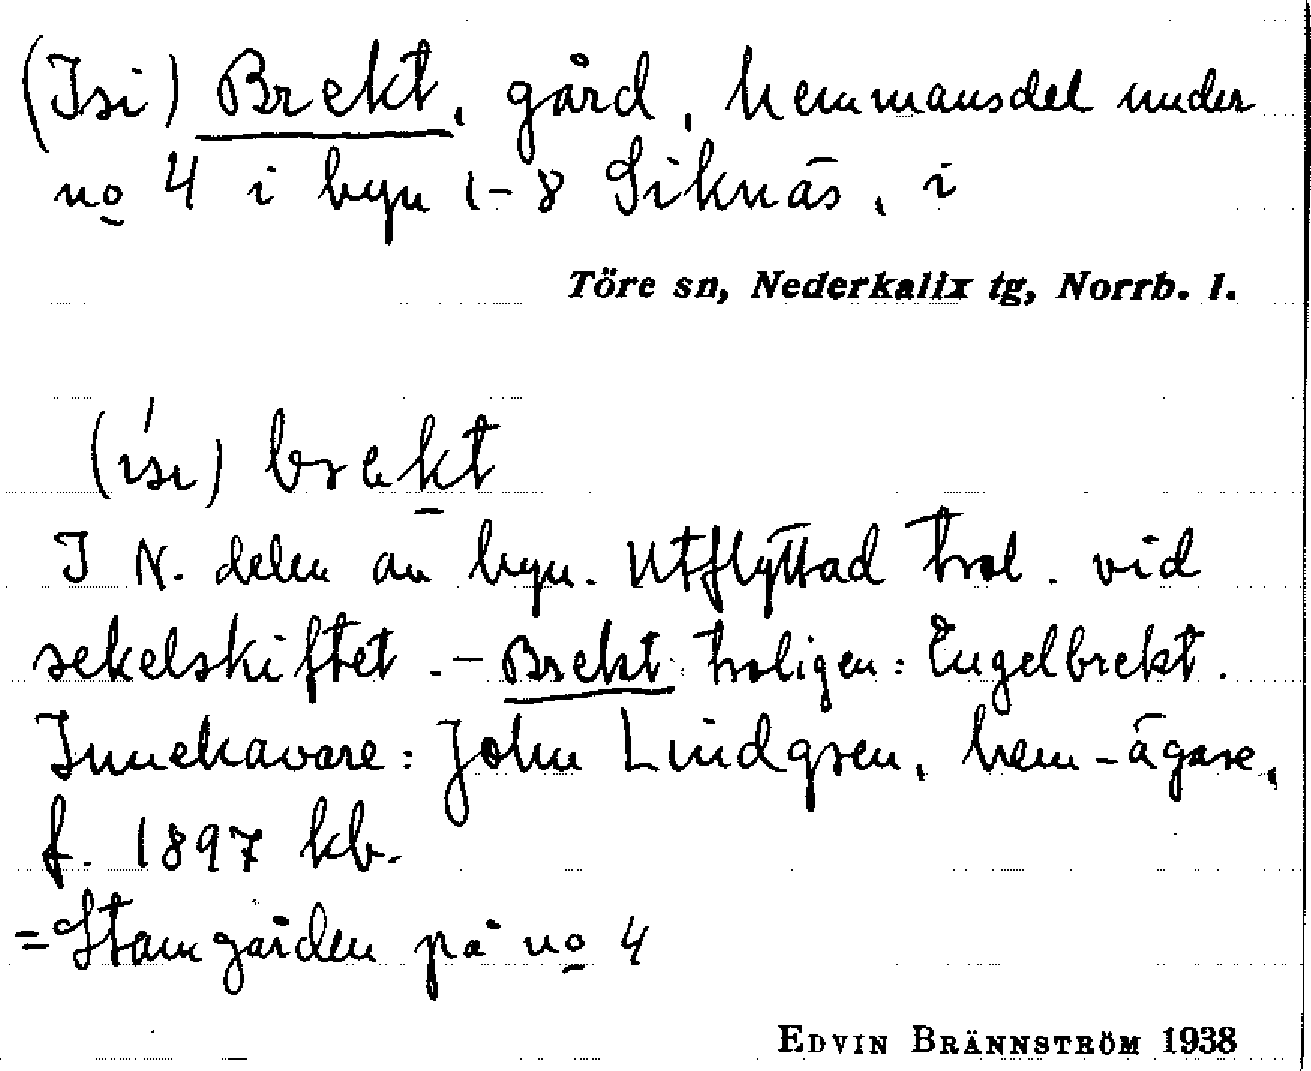 (Isi) Brekt, gård, hemmansdel under
no 4 i byn 1-8 Siknäs, i
Töre sn, Nederkalix tg, Norrb. l.
(ísı) brekt
I N. delen av byn. Utflyttad trol. vid
sekelskiftet. - Brekt troligen: Engelbrekt.
Innehavare: John Lindgren, hem-ägare,
f. 1897 kb.
= Stamgården på no 4
EDVIN BRÄNNSTRÖM 1938